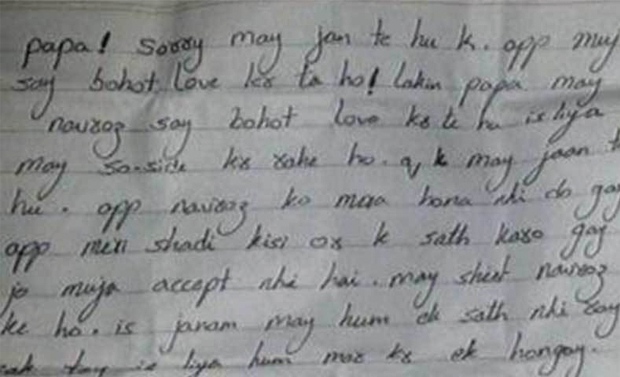 papa! sorry may jan te hu k. app muj
say bohot love kr ta ho! lakin papa may
navroz say bohot love kr te hu is liya
may so-side kr rahe ho. q k may jaan t
hu. app navroz ko mara hona nhi do gay
app meri shadi kisi or k sath karo gay
jo muja accept nhi hai. may sherf navroz
ke ho. is janam may hum ek sath nhi ray
sak tay is liya hum mar kr ek hongay.